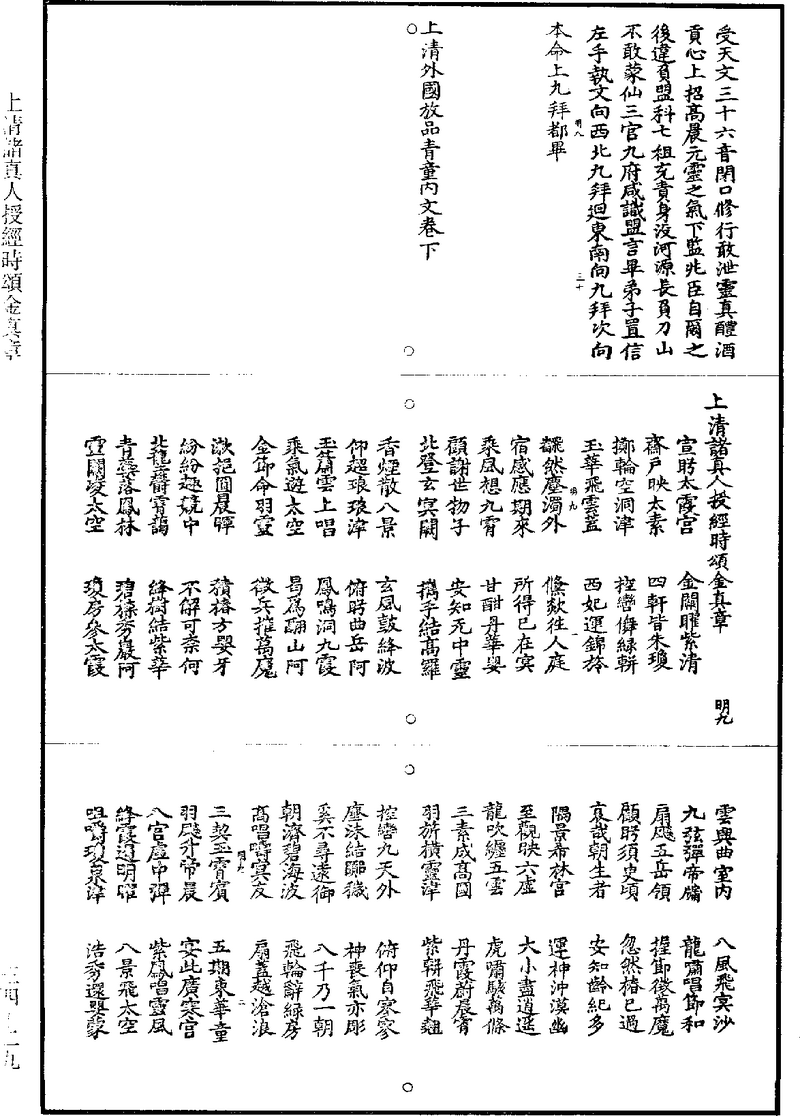 受天文三十六音閉口修行敢泄靈真醴酒
貢心上招高晨元靈之氣下監兆臣自爾之
後違負盟科七祖充責身沒河源長負刀山
不敢蒙仙三官九府咸識盟言畢弟子置信
左手執文向西北九拜迴東南向九拜次向
本命上九拜都畢
上清外國放品青童內文卷下
上清諸真人授經時頌金真章
明九
宣眄太霞宮 金闕曜紫清
齋戶映太素 四軒皆朱瓊
擲輪空洞津 控轡儛綠軿
玉華飛雲蓋 西妃運錦旍
飜然塵濁外 儵欻往人庭
宿感應期來 所得已在冥
乘風想九霄 甘酣丹華嬰
顧謝世物子 安知无中靈
北登玄冥闕 攜手結高羅
香煙散八景 玄風鼓絳波
仰超琅琅津 俯眄曲岳阿
玉簫雲上唱 鳳鳴洞九霞
乘氣遊太空 曷為翩山阿
金節命羽靈 徵兵摧萬魔
漱挹圓晨暉 積椿方嬰牙
紛紛趣競中 不解可柰何
北寵鬱霄藹 絳樹結紫華
青蘂落鳳林 碧條夯巖阿
靈闕凌太空 瓊房參太霞
雲輿曲室內 八風飛冥沙
九弦彈帝牖 龍嘯唱節和
扇飈五岳領 捏節徵萬魔
顧眄須臾頃 忽然椿已過
哀哉朝生者 安知齡紀多
隅景希林宮 運神沖漠幽
至觀映六虛 大小盡逍遥
龍吹纏五雲 虎嘯騣萬條
三素咸高國 丹霞蔚晨霄
羽旂橫靈津 紫軿飛華翹
控轡九天外 俯仰自寥寥
塵洙結聯穢 神喪氣亦彫
奚不尋遠御 八千乃一朝
朝濟碧海波 飛輪辭絳房
高唱疇冥友 扇蓋越滄浪
三契玉霄賓 五期東華童
羽飈升帝晨 宴此廣寒宮
八宮虛中彈 紫鳳唱靈風
絳霞道明曜 八景飛太空
咀嚼瓊泉津 浩夯還嬰蒙
上清諸真人授經時頌金真章